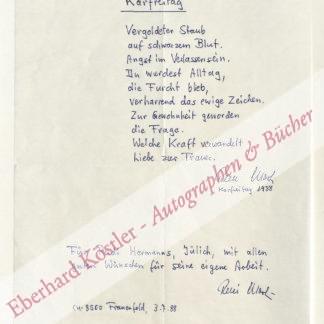 Karfreitag
Vergoldeter Staub
auf schwarzem Blut.
Angst im Verlassensein.
Du werdest Alltag,
die Furcht blieb,
verharrend das ewige Zeichen.
Zur Gewohnheit geworden
die Frage.
Welche Kraft verwandelt
Liebe zur Trauer.
Karfreitag 1988
Für Hermanns, Jülich, mit allen
guten Wünschen für seine eigene Arbeit.
CH-8500 Frauenfeld, 3.7.88
Eberhard Köstler - Autographen & Bücher